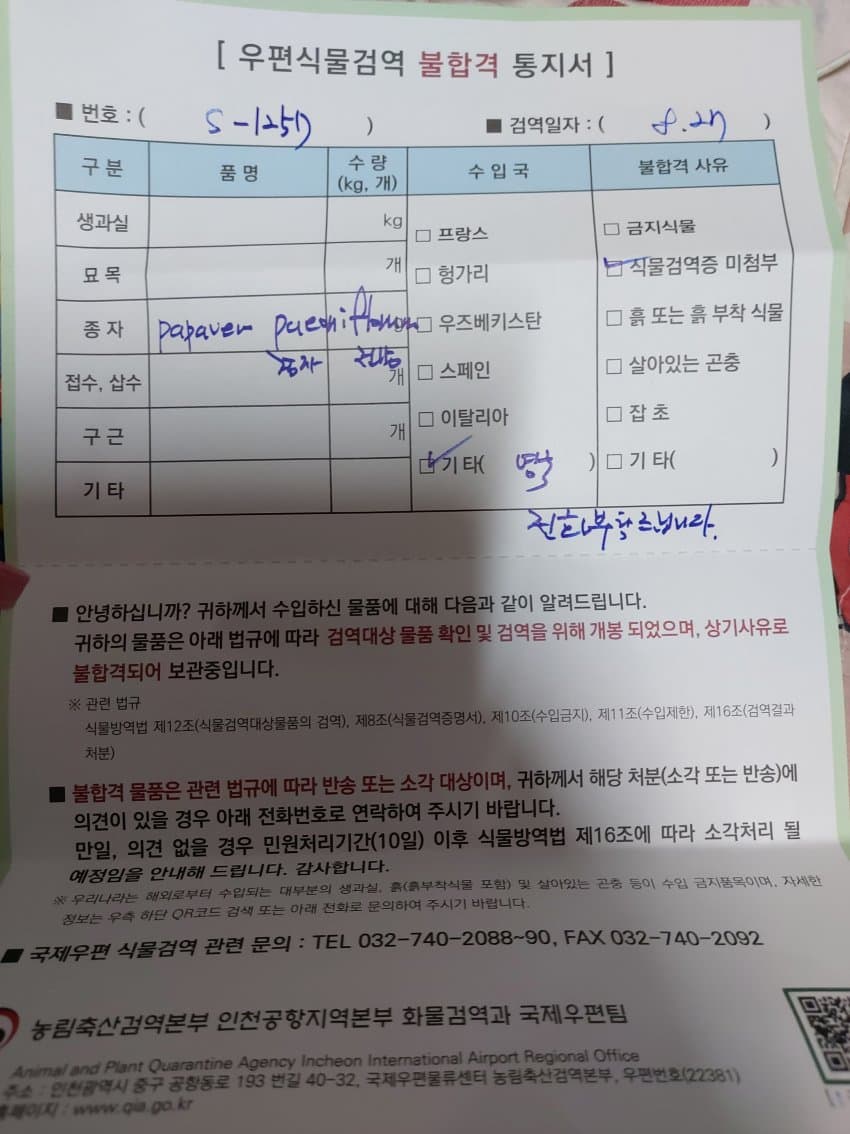 [ 우편식물검역 불합격 통지서 ]
■ 번호 : ( S-1257 ) ■ 검역일자 : ( 8.27 )
구 분 품 명 수 량 (kg, 개) 수 입 국 불합격 사유
생과실 kg
묘 목 개
종 자 papaver paeoniflorum g
종자
접수, 삽수 개
구 근 개
기 타
□ 프랑스
□ 헝가리
□ 우즈베키스탄
□ 스페인
□ 이탈리아
□ 기 타( 영국 )
□ 금지식물
□ 식물검역증 미첨부
□ 흙 또는 흙 부착 식물
□ 살아있는 곤충
□ 잡 초
□ 기 타( )
전화 부탁드립니다.
■ 안녕하십니까? 귀하께서 수입하신 물품에 대해 다음과 같이 알려드립니다.
귀하의 물품은 아래 법규에 따라 검역대상 물품 확인 및 검역을 위해 개봉 되었으며, 상기사유로
불합격되어 보관중입니다.
※ 관련 법규
식물방역법 제12조(식물검역대상물품의 검역), 제8조(식물검역증명서), 제10조(수입금지), 제11조(수입제한), 제16조(검역결과
처분)
■ 불합격 물품은 관련 법규에 따라 반송 또는 소각 대상이며, 귀하께서 해당 처분(소각 또는 반송)에
의견이 있을 경우 아래 전화번호로 연락하여 주시기 바랍니다.
만일, 의견 없을 경우 민원처리기간(10일) 이후 식물방역법 제16조에 따라 소각처리 될
예정임을 안내해 드립니다. 감사합니다.
※ 우리나라는 해외로부터 수입되는 대부분의 생과실, 흙(흙부착식물 포함) 및 살아있는 곤충 등이 수입 금지품목이며, 자세한
정보는 우측 하단 QR코드 검색 또는 아래 전화로 문의하여 주시기 바랍니다.
■ 국제우편 식물검역 관련 문의 : TEL 032-740-2088~90, FAX 032-740-2092
농림축산검역본부 인천공항지역본부 화물검역과 국제우편팀
Animal and Plant Quarantine Agency Incheon International Airport Regional Office
주소 : 인천광역시 중구 공항동로 193 번길 40-32, 국제우편물류센터 농림축산검역본부, 우편번호(22381)
홈페이지 : www.qia.go.kr